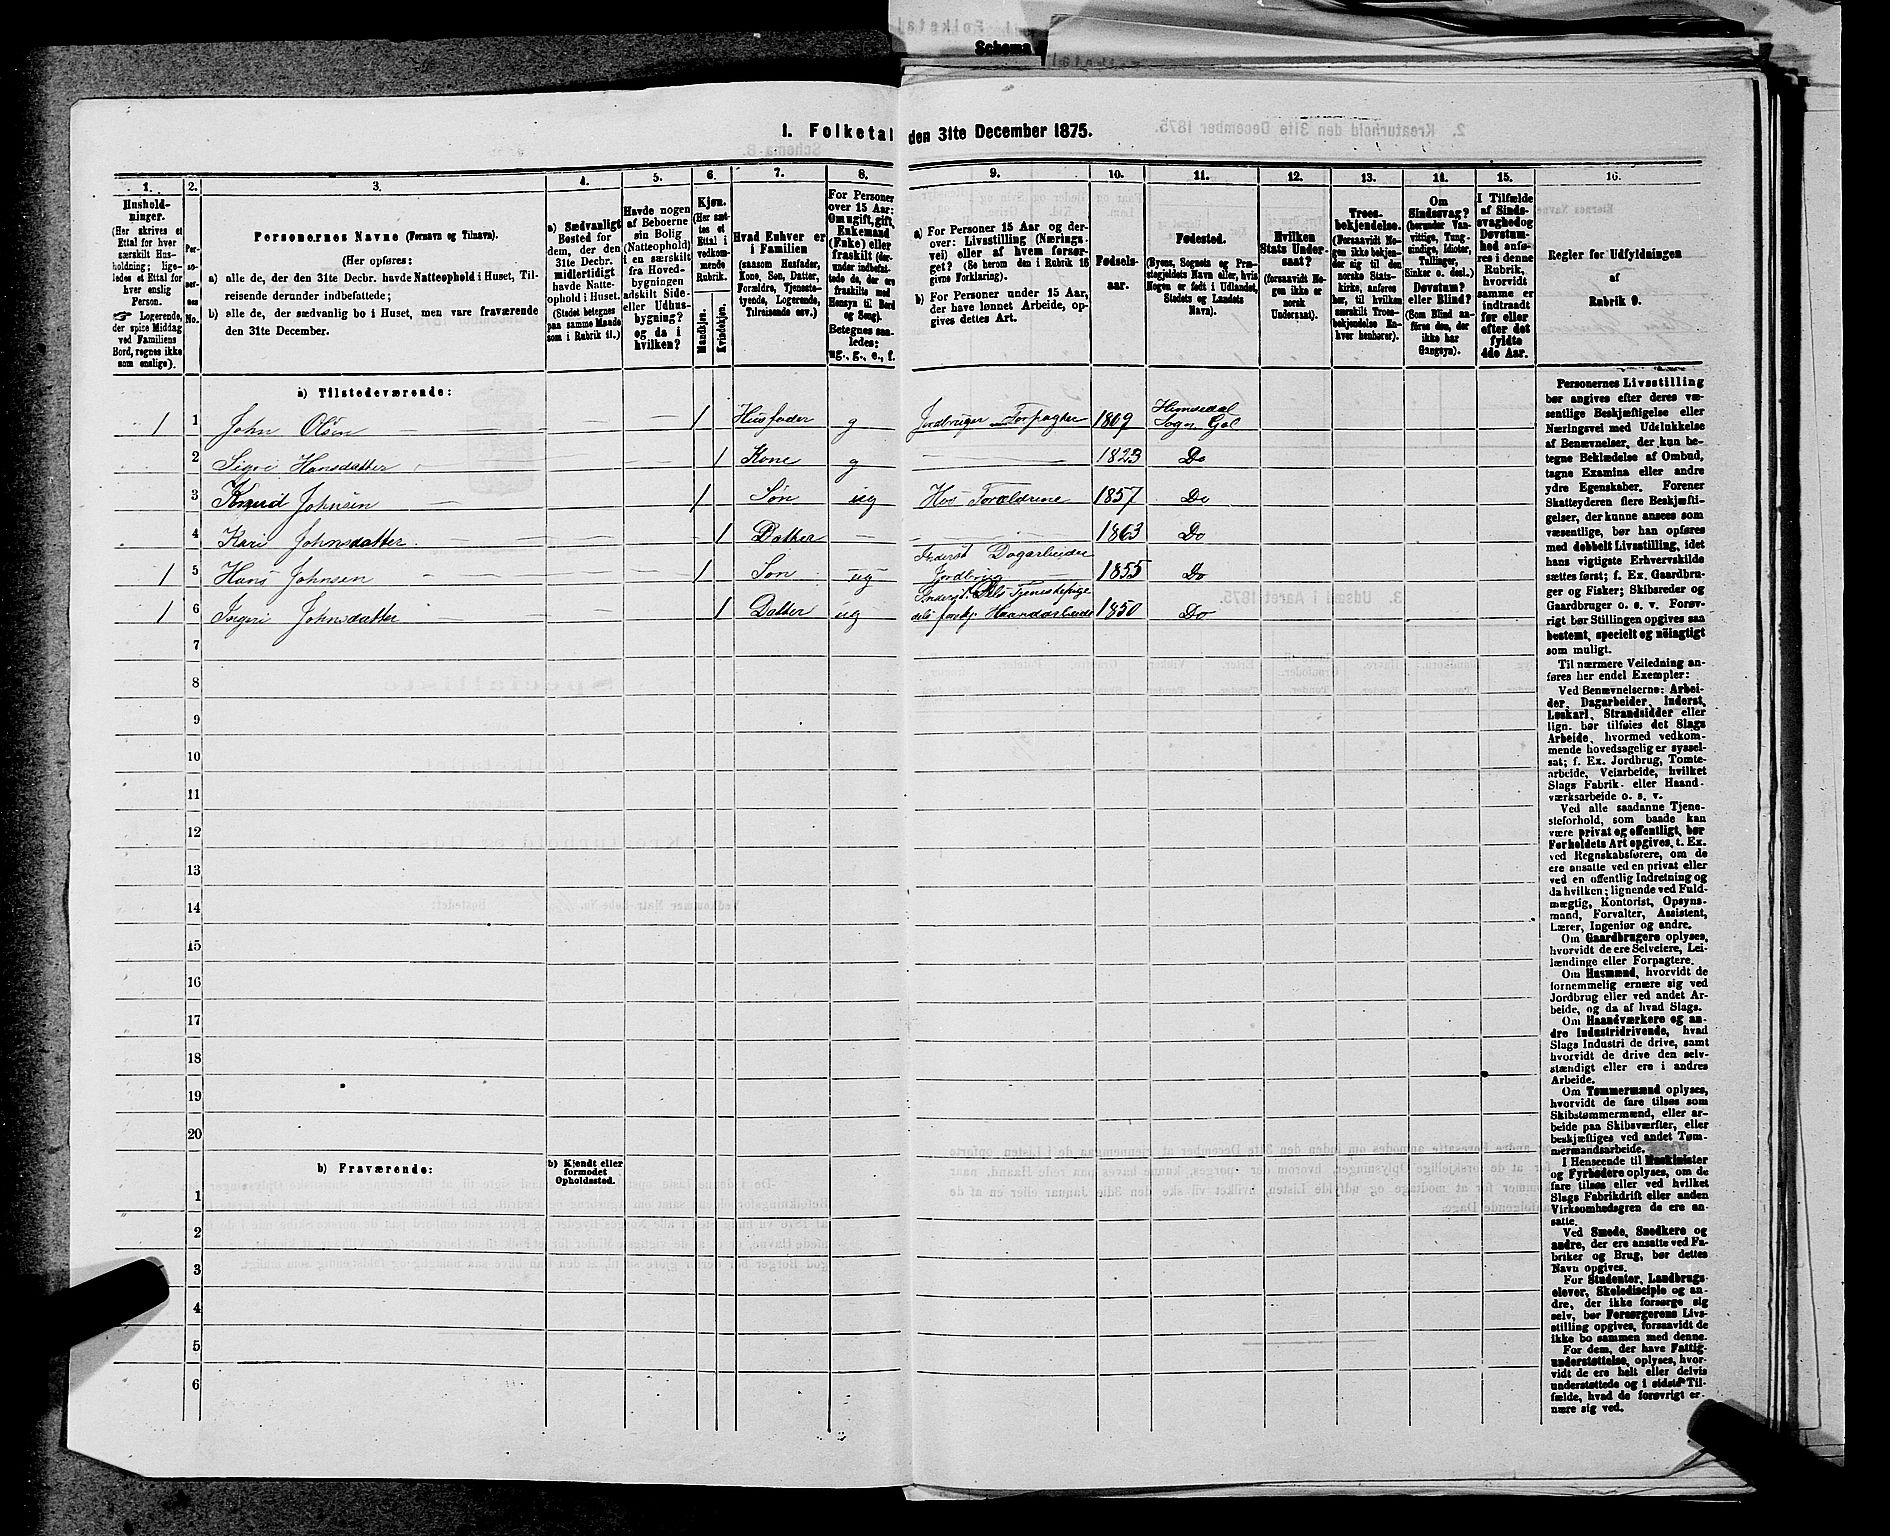 1. Folketal den 31te December 1875.
1.
Hushold-
ninger.
(Her skrives et
Ettal for hver
særskilt Hus-
holdning; lige-
ledes et Ettal for
hver enslig
Person.
☞ Logerende,
der spise Middag
ved Familiens
Bord, regnes ikke
som enslige).
2.
Per-
so-
ner-
nes
No.
3.
Personernes Navne (Fornavn og Tilnavn).
(Her opføres:
a) alle de, der den 31te Decbr. havde Natteophold i Huset, Til-
reisende derunder indbefattede;
b) alle de, der sædvanlig bo i Huset, men vare fraværende
den 31te December.
4.
a) Sædvanligt
Bosted for
dem, der den
31te Decbr.
midlertidigt
havde Natte-
ophold i Huset.
(Stedet betegnes
paa samme Maade
som i Rubrik 11.)
5.
Havde nogen
af Beboerne
sin Bolig
(Natteophold)
i en særskilt
fra Hoved-
bygningen
adskilt Side-
eller Udhus-
bygning?
og da i
hvilken?
6.
Kjøn.
(Her sæt-
tes et
Ettal i
vedkom-
mende
Rubrik.
Mandkjøn.
Kvindekjøn.
7.
Hvad Enhver er
i Familien
(saasom Husfader,
Kone, Søn, Datter,
Forældre, Tjeneste-
tyende, Logerende,
Tilreisende osv.)
8.
For Personer
over 15 Aar:
Om ugift, gift
Enkemand
(Enke) eller
fraskilt (der-
under indbefat-
tede de, der ere
fraskilte med
Hensyn til Bord
og Seng).
Betegnes saa-
ledes:
ug., g., e., f.
9.
a) For Personer 15 Aar og der-
over: Livsstilling (Nærings-
vei) eller af hvem forsør-
get? (Se herom den i Rubrik 16
givne Forklaring).
b) For Personer under 15 Aar,
der have lønnet Arbeide, op-
gives dettes Art.
10.
Fødsels-
aar.
11.
Fødested.
(Byens, Sognets og Præ-
stegjeldets Navn eller, hvis
Nogen er født i Udlandet,
Stedets og Landets
Navn).
12.
Hvilken
Stats Under-
saat?
(forsaavidt No-
gen ikke er
norsk
Undersaat).
13.
Troes-
bekjendelse.
(Forsaavidt No-
gen ikke bekjen-
der sig til den
norske Stats-
kirke, anføres
her, til hvilken
særskilt Troes-
bekjendelse En-
hver henhører).
14.
Om
Sindssvag?
(herunder Van-
vittige, Tung-
sindige, Idioter,
Tullinger,
Sinker o. desl.)
Døvstum?
eller Blind?
(Som Blind an-
føres den, der
ikke har
Gangsyn).
15.
I Tilfælde
af Sinds-
svaghed og
Døvstum-
hed anfø-
res i denne
Rubrik,
hvorvidt
samme er
indtraadt
før eller
efter det
fyldte
4de Aar.
16.
Regler for Udfyldningen
af
Rubrik 9.
a) Tilstedeværende:
1 1 John Olsen — — 1 Husfader g Jordbruger Forpagter 1809 Hemsedal Sogn Gol
2 Sigri Hansdatter — — 1 Kone g — 1823 Do
3 Knud Johnsen — — 1 Søn ug Hos Forældrene 1857 Do
4 Kari Johnsdatter — — 1 Datter — — 1863 Do
1 5 Hans Johnsen — — 1 Søn ug Inderst Dagarbeider Jordbrug 1855 Do
1 6 Ingri Johnsdatter — — 1 Datter ug Inderst. Dels Tjenestepige dels forskj. Haandarbeide 1850 Do
7
8
9
10
11
12
13
14
15
16
17
18
19
20
b) Fraværende:
b) Kjendt eller
formodet
Opholdssted.
1
2
3
4
5
6
Personernes Livsstilling
bør angives efter deres væ-
sentlige Beskjæftigelse eller
Næringsvei med Udelukkelse
af Benævnelser, der kun be-
tegne Beklædelse af Ombud,
tagne Examina eller andre
ydre Egenskaber. Forener
Skatteyderen flere Beskjæfti-
gelser, der kunne ansees som
væsentlige, bør han opføres
med dobbelt Livsstilling, idet
hans vigtigste Erhvervskilde
sættes først; f. Ex. Gaardbru-
ger og Fisker; Skibsreder og
Gaardbruger o. s. v. Forøv-
rigt bør Stillingen opgives saa
bestemt, specielt og nöiagtigt
som muligt.
Til nærmere Veiledning an-
føres her endel Exempler:
Ved Benævnelserne: Arbei-
der, Dagarbeider, Inderst,
Løskarl, Strandsidder eller
lign. bør tilføies det Slags
Arbeide, hvormed vedkom-
mende hovedsagelig er syssel-
sat; f. Ex. Jordbrug, Tomte-
arbeide, Veiarbeide, hvilket
Slags Fabrik- eller Haand-
værksarbeide o. s. v.
Ved alle saadanne Tjene-
steforhold, som baade kan
være privat og offentligt, bør
Forholdets Art opgives, t. Ex.
ved Regnskabsførere, om de
ere ansatte ved en privat eller
ved en offentlig Indretning og
da hvilken; lignende ved Fuld-
mægtig, Kontorist, Opsyns-
mand, Forvalter, Assistent,
Lærer, Ingeniør og andre.
Om Gaardbrugere oplyses,
hvorvidt de ere Selveiere, Lei-
lændinge eller Forpagtere.
Om Husmænd, hvorvidt de
fornemmelig ernære sig ved
Jordbrug eller ved andet Ar-
beide, og da af hvad Slags.
Om Haandværkere og an-
dre Industridrivende, hvad
Slags Industri de drive, samt
hvorvidt de drive den selv-
stændigt eller ere i andres
Arbeide.
Om Tømmermænd oplyses,
hvorvidt de fare tilsøs som
Skibstømmermænd, eller ar-
beide paa Skibsværfter, eller
beskjæftiges ved andet Tøm-
mermandsarbeide.
I Henseende til Maskinister
og Fyrbødere oplyses, om de
fare tilsøs eller ved hvilket
Slags Fabrikdrift eller anden
Virksomhedsgren de ere an-
satte.
Ved Smede, Snedkere og
andre, der ere ansatte ved Fa-
briker og Brug, bør dettes
Navn opgives.
For Studenter, Landbrugs-
elever, Skoledisciple og an-
dre, der ikke forsørge sig
selv, bør Forsørgerens Livs-
stilling opgives, forsaavidt de
ikke bo sammen med denne.
For dem, der have Fattig-
understøttelse, oplyses, hvor-
vidt de ere helt eller delvis
understøttede og i sidste Til-
fælde, hvad de forøvrigt er-
nære sig ved.